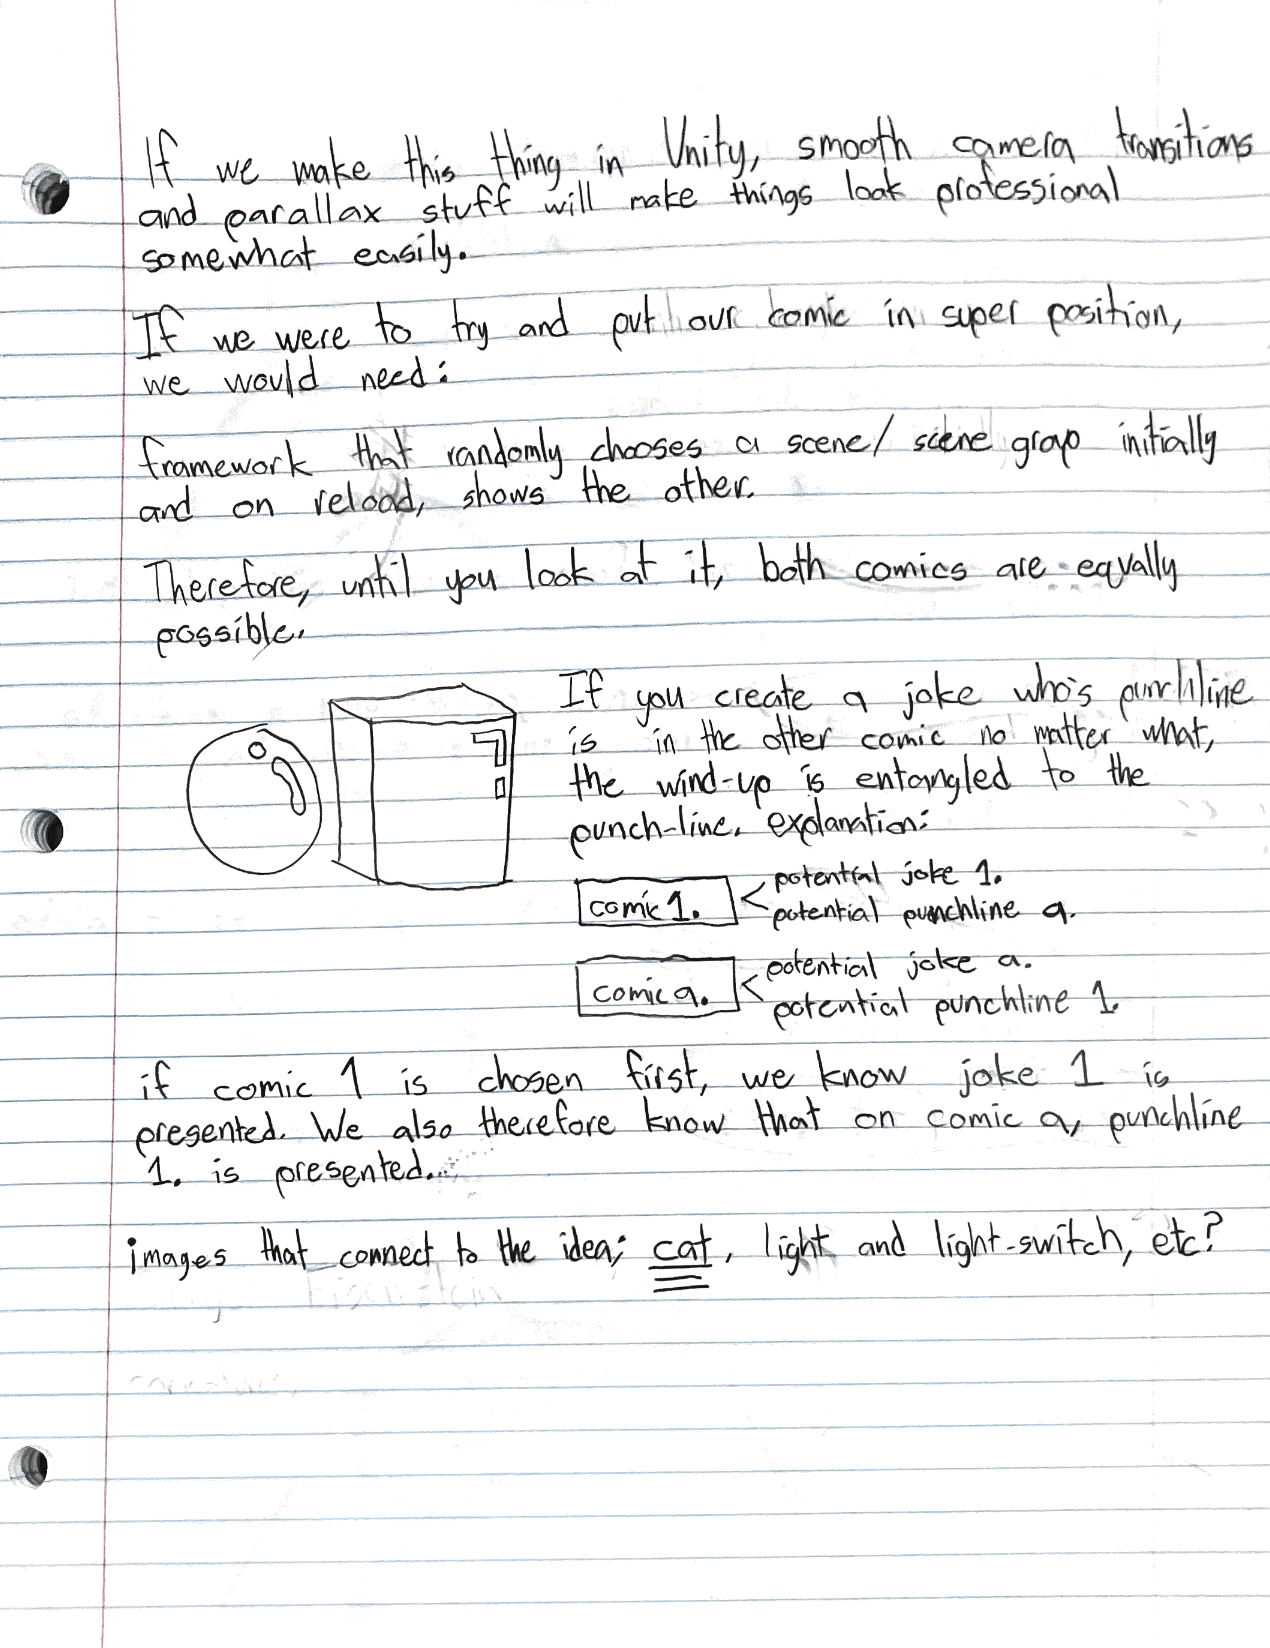 If we make this thing in Unity, smooth camera transitions
and parallax stuff will make things look professional
somewhat easily.
If we were to try and put our comic in super position,
we would need:
framework that randomly chooses a scene/ scene group initially
and on reload, shows the other.
Therefore, until you look at it, both comics are equally
possible.
If you create a joke who's punchline
is in the other comic no matter what,
the wind-up is entangled to the
punch-line. explanation:
comic 1.
potential joke 1.
potential punchline a.
comic a.
potential joke a.
potential punchline 1.
if comic 1 is chosen first, we know joke 1 is
presented. We also therefore know that on comic a, punchline
1. is presented...
images that connect to the idea; cat, light and light-switch, etc?